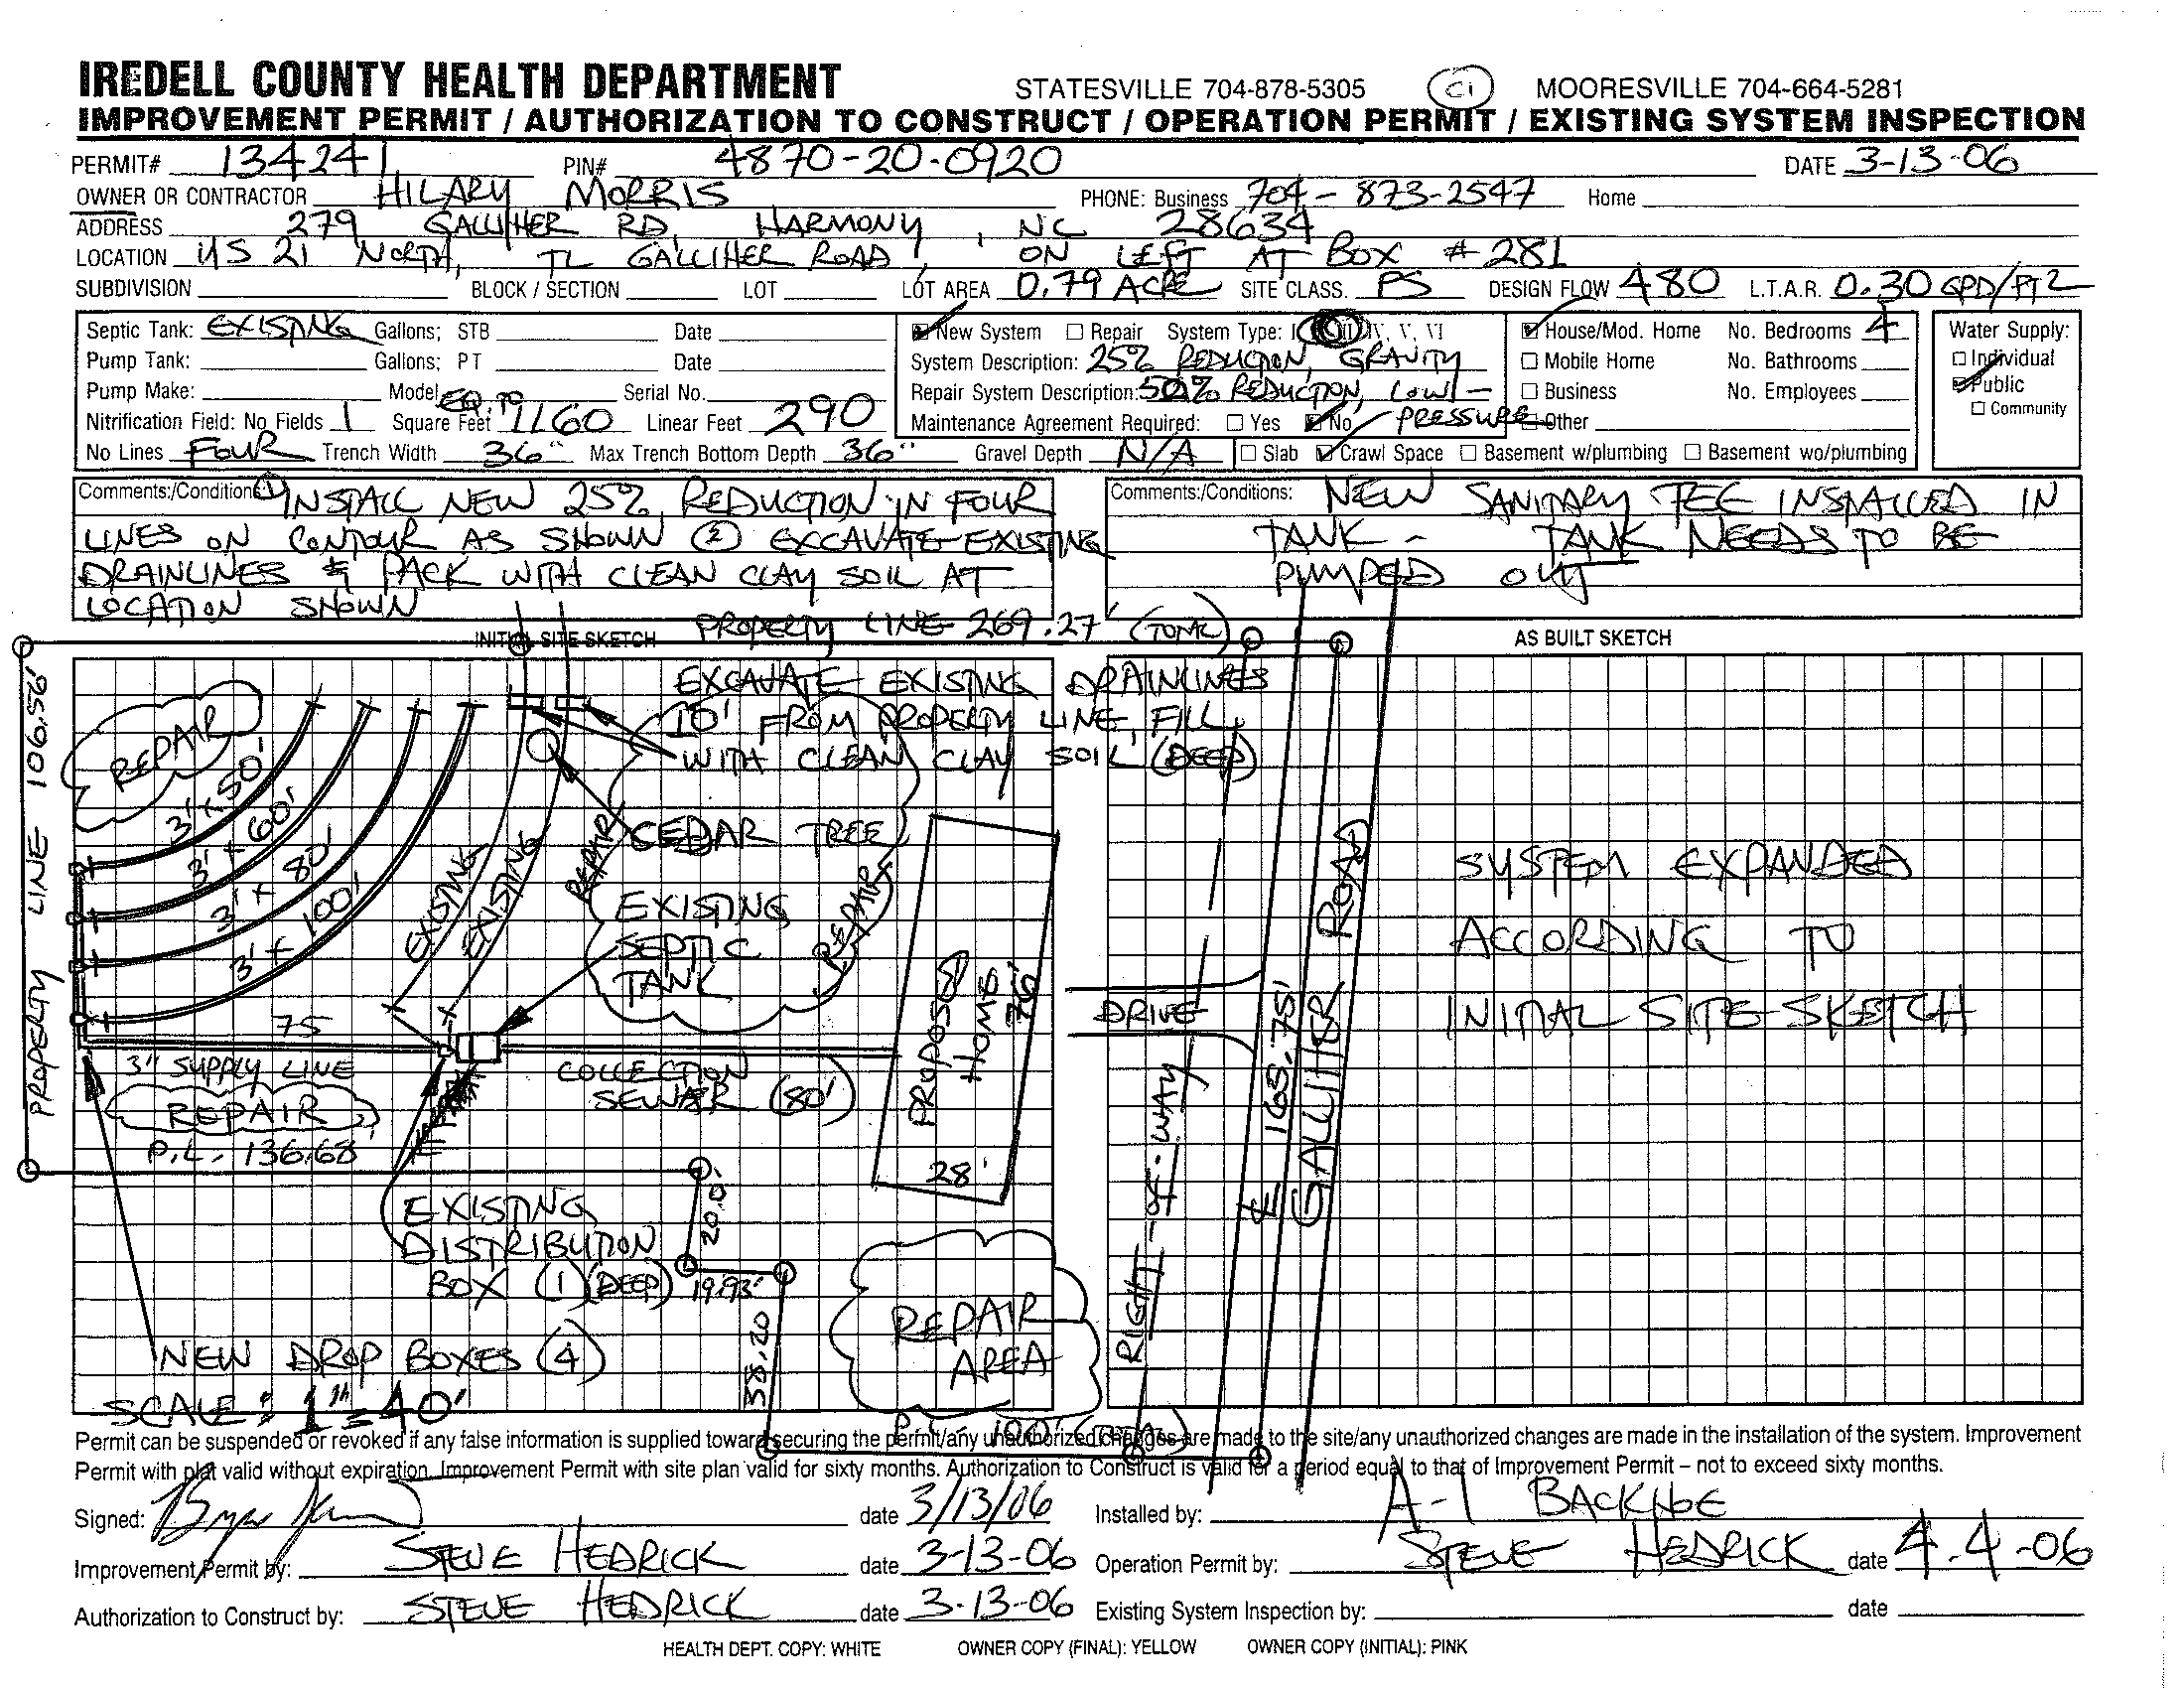 IREDELL COUNTY HEALTH DEPARTMENT STATESVILLE 704-878-5305 Ci MOORESVILLE 704-664-5281
IMPROVEMENT PERMIT / AUTHORIZATION TO CONSTRUCT / OPERATION PERMIT / EXISTING SYSTEM INSPECTION
PERMIT# 134241 PIN# 4870-20-0920 DATE 3-13-06
OWNER OR CONTRACTOR HILARY MORRIS PHONE: Business 704-873-2547 Home
ADDRESS 279 GALLIHER RD, HARMONY, NC 28634
LOCATION US 21 NORTH, TL GALLIHER ROAD, ON LEFT AT BOX #281
SUBDIVISION BLOCK / SECTION LOT LOT AREA 0.79 ACRE SITE CLASS. PS DESIGN FLOW 480 L.T.A.R. 0.30 GPD/FT2
Septic Tank: EXISTING Gallons; STB Date
Pump Tank: Gallons; PT Date
Pump Make: Model Serial No.
Nitrification Field: No Fields 1 Square Feet EQ. TO 1160 Linear Feet 290
No Lines FOUR Trench Width 36" Max Trench Bottom Depth 36" Gravel Depth N/A
New System Repair System Type: I V, VI
System Description: 25% REDUCTION, GRAVITY
Repair System Description: 50% REDUCTION, LOW-PRESSURE
Maintenance Agreement Required: Yes No
House/Mod. Home No. Bedrooms 4
Mobile Home No. Bathrooms
Business No. Employees
Other
Slab Crawl Space Basement w/plumbing Basement wo/plumbing
Water Supply:
Individual
Public
Community
Comments:/Conditions: ① INSTALL NEW 25% REDUCTION IN FOUR
LINES ON CONTOUR AS SHOWN ② EXCAVATE EXISTING
DRAINLINES & PACK WITH CLEAN CLAY SOIL AT
LOCATION SHOWN
Comments:/Conditions: NEW SANITARY TEE INSTALLED IN
TANK - TANK NEEDS TO BE
PUMPED OUT
INITIAL SITE SKETCH PROPERTY LINE 269.27' (TOTAL)
AS BUILT SKETCH
PROPERTY LINE 106.56'
EXCAVATE EXISTING DRAINLINES
10' FROM PROPERTY LINE, FILL
WITH CLEAN CLAY SOIL (DEEP)
REPAIR
3' x 50'
3' x 60'
3' x 80'
3' x 100'
EXISTING
EXISTING
REPAIR
CEDAR TREE
REPAIR
EXISTING
SEPTIC
TANK
PROPOSED
HOME
76'
28'
75
3" SUPPLY LINE
COLLECTION
SEWER (80')
REPAIR
P.L. 136.68'
EXISTING
DISTRIBUTION
BOX (1) (DEEP)
20.0'
19.93'
38.20
NEW DROP BOXES (4)
SCALE: 1"=40'
REPAIR
AREA
DRIVE
RIGHT-OF-WAY
℄ 165.75'
GALLIHER ROAD
SYSTEM EXPANDED
ACCORDING TO
INITIAL SITE-SKETCH
P.L. 100' (TOTAL)
Permit can be suspended or revoked if any false information is supplied toward securing the permit/any unauthorized changes are made to the site/any unauthorized changes are made in the installation of the system. Improvement
Permit with plat valid without expiration. Improvement Permit with site plan valid for sixty months. Authorization to Construct is valid for a period equal to that of Improvement Permit – not to exceed sixty months.
Signed: date 3/13/06 Installed by: A-1 BACKHOE
Improvement Permit by: STEVE HEDRICK date 3-13-06 Operation Permit by: STEVE HEDRICK date 4-4-06
Authorization to Construct by: STEVE HEDRICK date 3-13-06 Existing System Inspection by: date
HEALTH DEPT. COPY: WHITE OWNER COPY (FINAL): YELLOW OWNER COPY (INITIAL): PINK